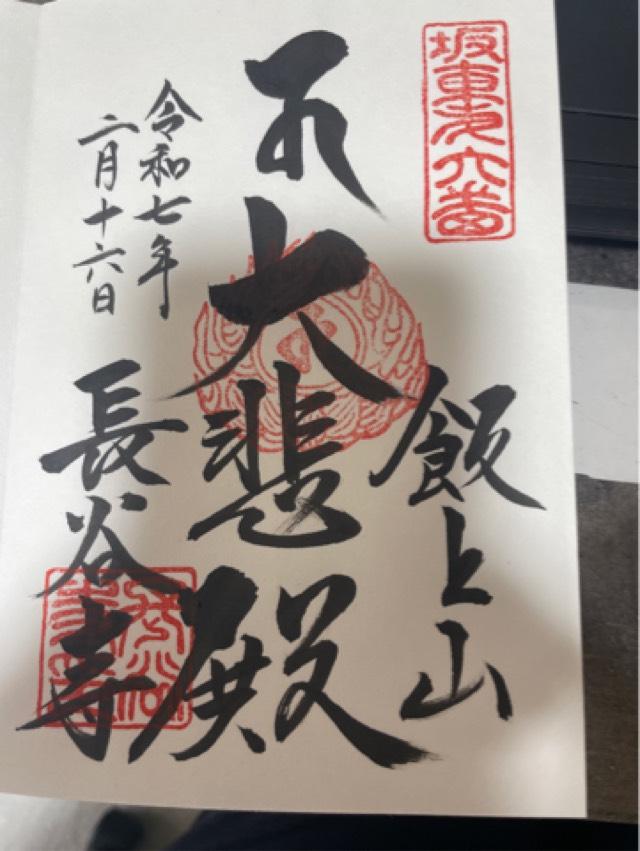 坂東第六番
飯上山
大悲殿
令和七年
二月十六日
長谷寺